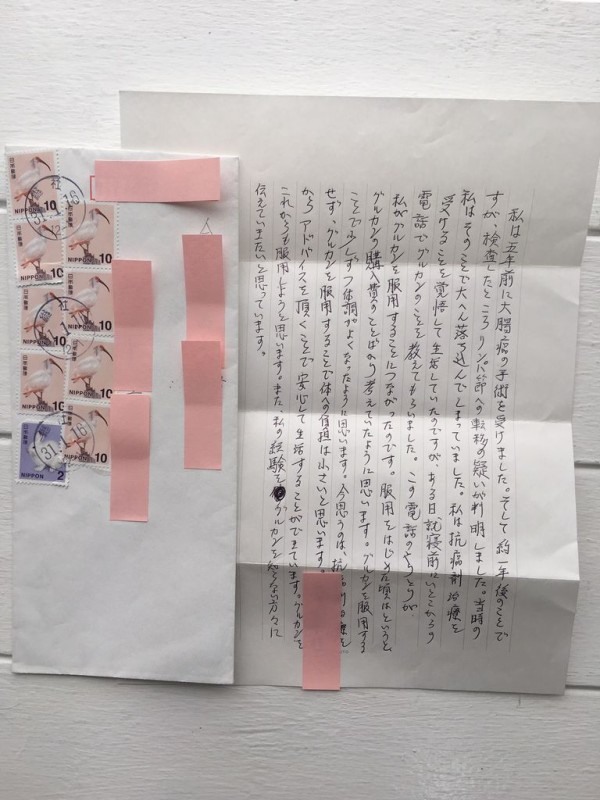 私は五年前に大腸癌の手術を受けました。そして約一年後のことで
すが、検査したところリンパ節への転移の疑いが判明しました。当時の
私はそのことで大へん落ち込んでしまっていました。私は抗癌剤治療を
受けることを覚悟して生活していたのですが、ある日就寝前にいとこからの
電話でグルカンのことを教えてもらいました。この電話のやりとりが
私がグルカンを服用することにつながったのです。服用をはじめた頃はというと
グルカンの購入費のことばかり考えていたように思います。グルカンを服用する
ことで少しずつ体調がよくなったように思います。今思うのは、抗
せず、グルカンを服用することで体への負担は小さいと思います。
からアドバイスを頂くことで安心して生活することができています。グルカンを
これからも服用しようと思います。また、私の経験をグルカンを知らない方々に
伝えていきたいと思っています。
日本郵便
NIPPON 10
日本郵便
NIPPON 10
日本郵便
NIPPON 10
日本郵便
NIPPON 10
日本郵便
NIPPON 10
日本郵便
NIPPON 10
日本郵便
NIPPON 10
日本郵便
NIPPON 10
日本郵便
NIPPON 2
31.1.16